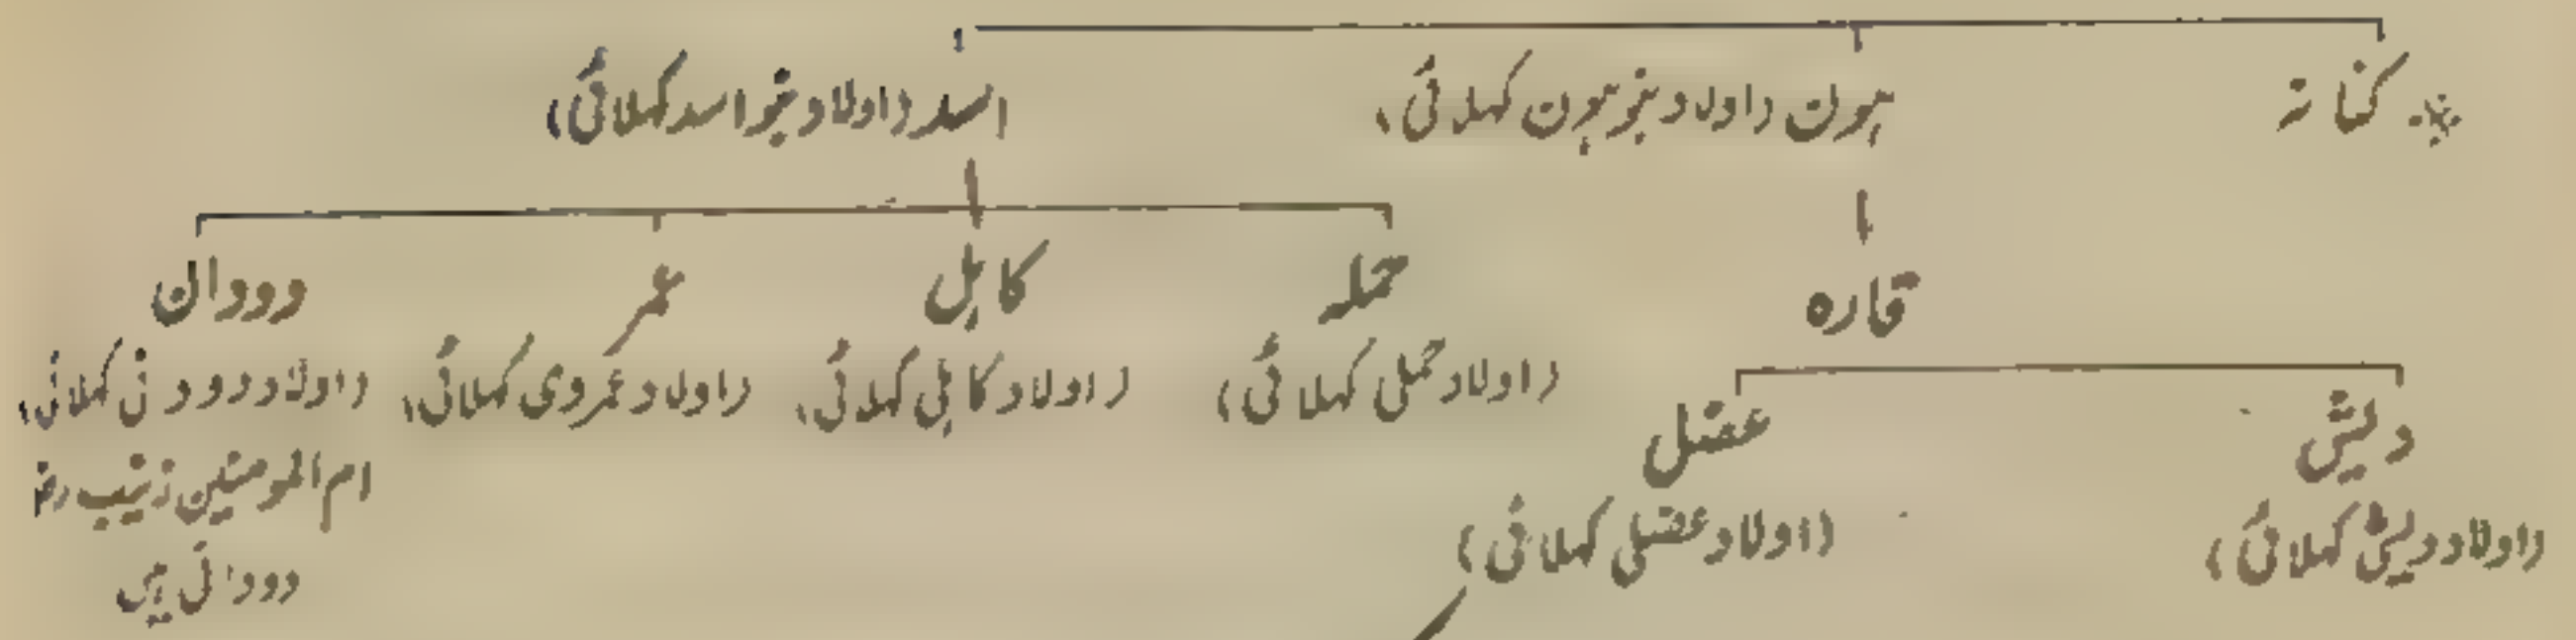 کنانہ
ہون (اولاد بنو ہون کہلائی)
اسد (اولاد بنو اسد کہلائی)
قارہ
حملہ
کاہل
عمر
دودان
(اولاد حملی کہلائی)
(اولاد کاہلی کہلائی)
(اولاد عمروی کہلائی)
(اولاد دودانی کہلائی)
ام المومنین زینبؓ
دودانی ہیں
دیش
عضل
(اولاد دیشی کہلائی)
(اولاد عضلی کہلائی)